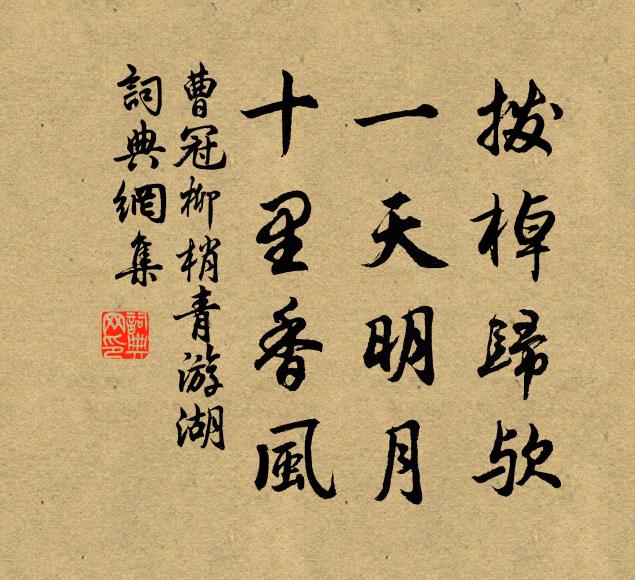 拨棹歸欤
一天明月
十里香風
曹冠柳梢青游湖
詞典網集
詞典
网印